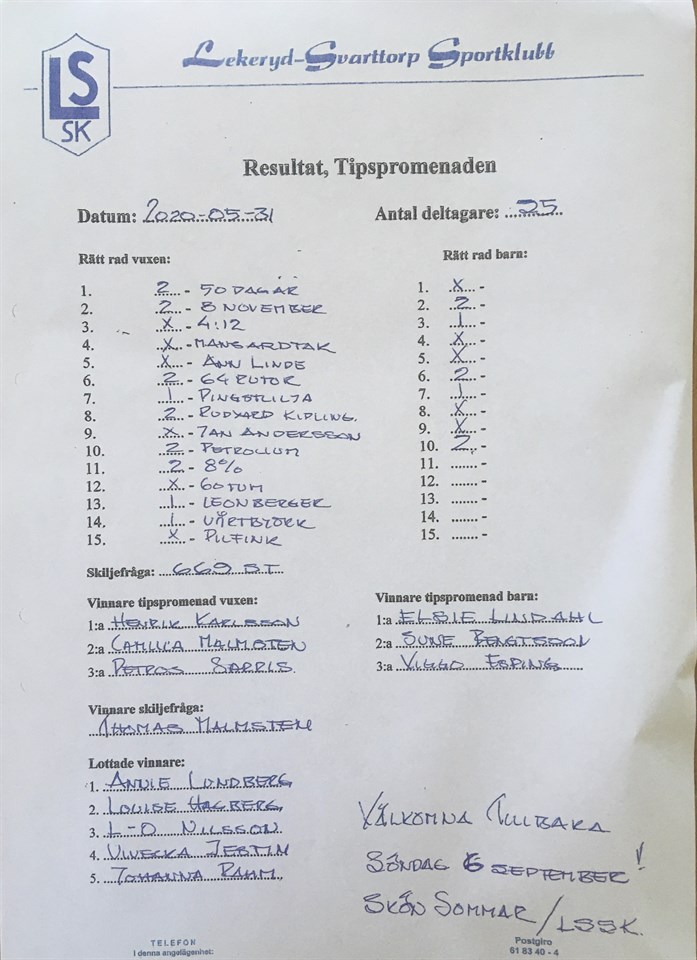 LS
SK
Lekeryd-Svarttorp Sportklubb
Resultat, Tipspromenaden
Datum: 2020-05-31
Antal deltagare: 25
Rätt rad vuxen:
1. 2 - 50 DAGAR
2. 2 - 8 NOVEMBER
3. X - 4:12
4. X - MANSARDTAK
5. X - ANN LINDE
6. 2 - 64 RUTOR
7. 1 - PINGSTLILJA
8. 2 - RUDYARD KIPLING.
9. X - JAN ANDERSSON
10. 2 - PETROLIUM
11. 2 - 8%
12. X - 60 TUM
13. 1 - LEONBERGER
14. 1 - VÅRTBJÖRK
15. X - PILFINK
Rätt rad barn:
1. X -
2. 2 -
3. 1 -
4. X -
5. X -
6. 2 -
7. 1 -
8. X -
9. X -
10. 2 -
11. ....... -
12. ....... -
13. ....... -
14. ....... -
15. ....... -
Skiljefråga: 669 ST.
Vinnare tipspromenad vuxen:
1:a HENRIK KARLSSON
2:a CAMILLA MALMSTEN
3:a PETROS SARRIS.
Vinnare tipspromenad barn:
1:a ELSIE LINDAHL
2:a SUNE BENGTSSON
3:a VIGGO ESPING
Vinnare skiljefråga:
THOMAS MALMSTEN
Lottade vinnare:
1. ANNIE LUNDBERG
2. LOUISE HAGBERG
3. L-O NILSSON
4. VIVECKA
5. JOHANNA RAHM
VÄLKOMNA TILLBAKA
SÖNDAG 6 SEPTEMBER!
SKÖN SOMMAR/LSSK.
TELEFON
I denna angelägenhet:
Postgiro
61 83 40 - 4